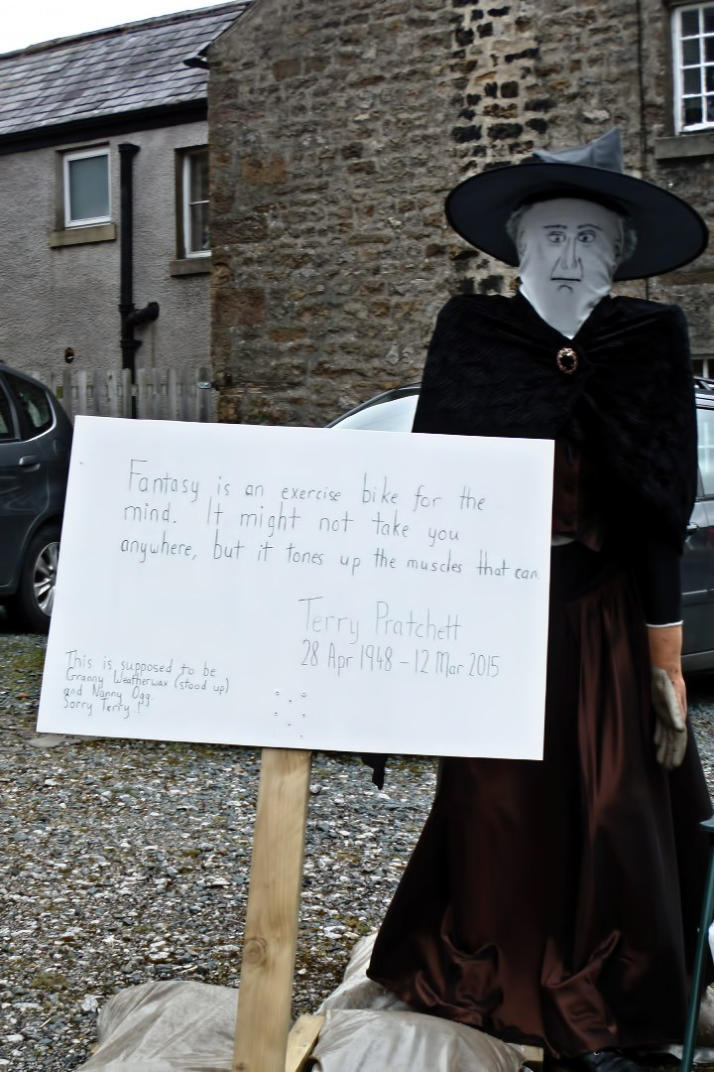 Fantasy is an exercise bike for the
mind. It might not take you
anywhere, but it tones up the muscles that can.
Terry Pratchett
28 Apr 1948 - 12 Mar 2015
This is supposed to be
Granny Weatherwax (stood up)
and Nanny Ogg.
Sorry Terry!